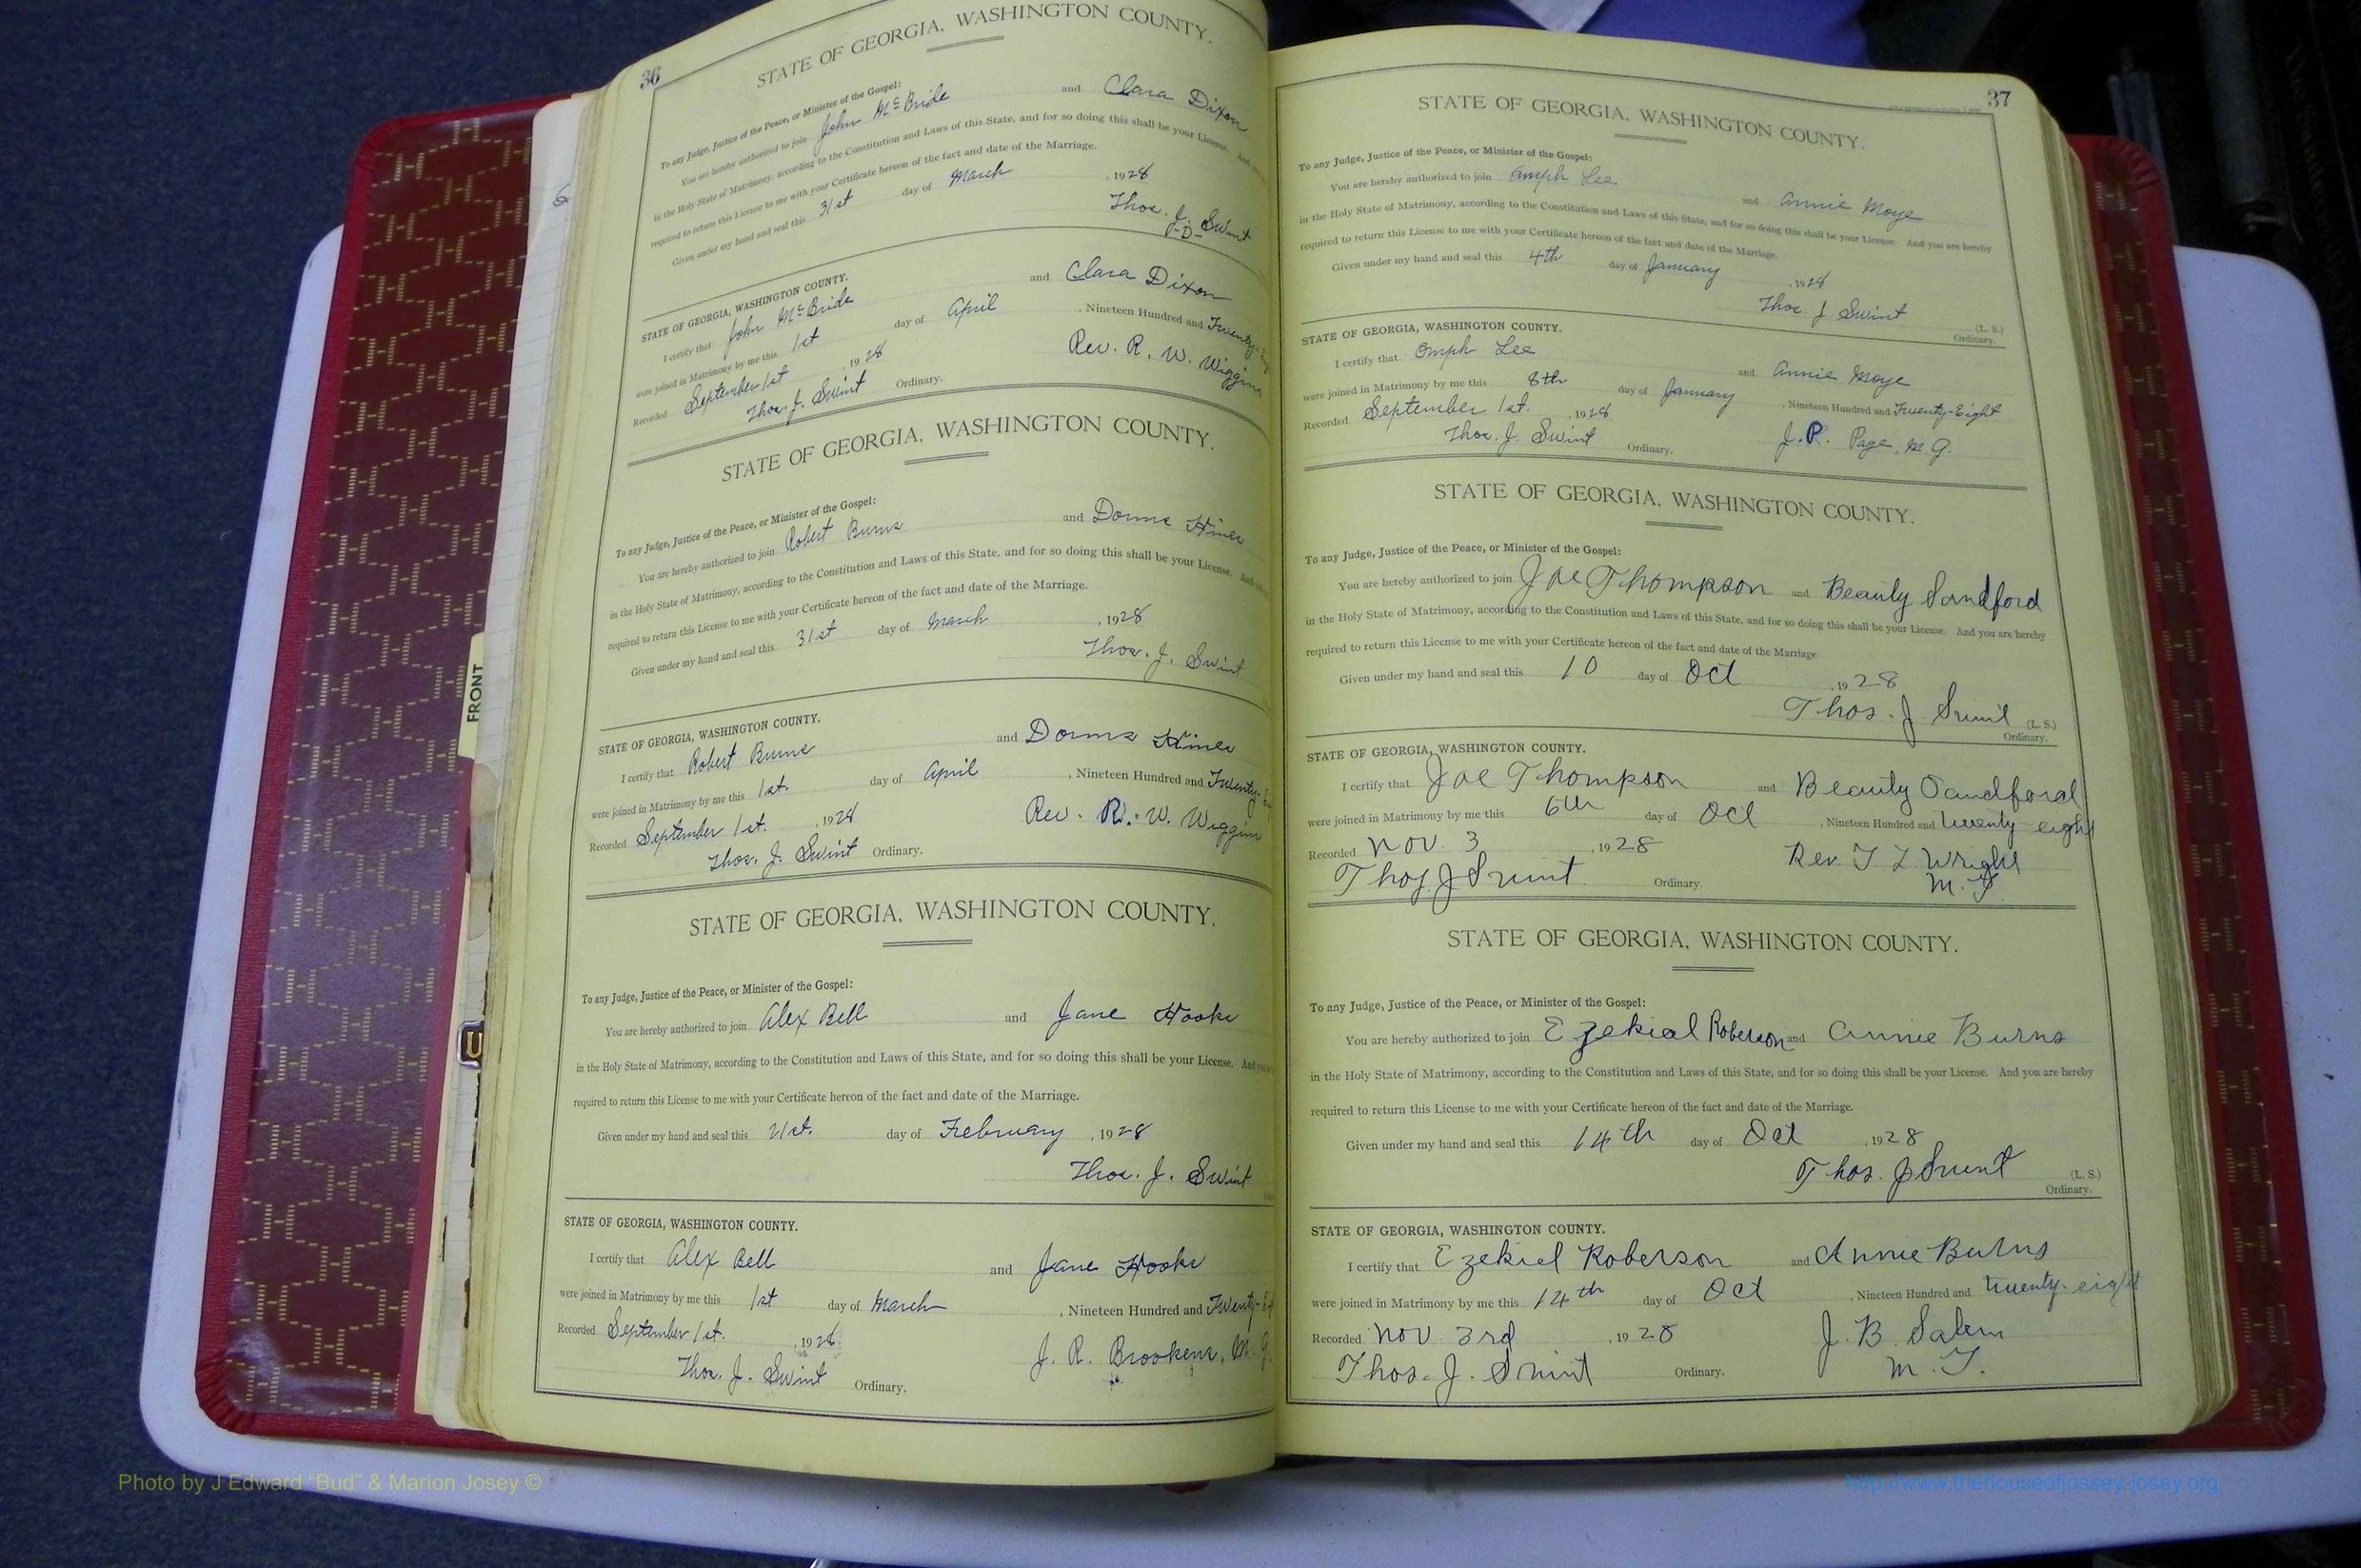 36
STATE OF GEORGIA, WASHINGTON COUNTY.
To any Judge, Justice of the Peace, or Minister of the Gospel:
You are hereby authorized to join John McBride and Clara Dixon
in the Holy State of Matrimony, according to the Constitution and Laws of this State, and for so doing this shall be your License. And
required to return this License to me with your Certificate hereon of the fact and date of the Marriage.
Given under my hand and seal this 31st day of March, 1928
Thos. J. Swint
STATE OF GEORGIA, WASHINGTON COUNTY.
I certify that John McBride and Clara Dixon
were joined in Matrimony by me this 1st day of April, Nineteen Hundred and Twenty-
Recorded September 1st, 1928 Rev. R. W. Wiggins
Thos. J. Swint Ordinary.
STATE OF GEORGIA, WASHINGTON COUNTY.
To any Judge, Justice of the Peace, or Minister of the Gospel:
You are hereby authorized to join Robert Burns and Hines
in the Holy State of Matrimony, according to the Constitution and Laws of this State, and for so doing this shall be your License. And
required to return this License to me with your Certificate hereon of the fact and date of the Marriage.
Given under my hand and seal this 31st day of March, 1928
Thos. J. Swint
STATE OF GEORGIA, WASHINGTON COUNTY.
I certify that Robert Burns and Hines
were joined in Matrimony by me this 1st. day of April, Nineteen Hundred and Twenty-
Recorded September 1st., 1928 Rev. R. W. Wiggins
Thos. J. Swint Ordinary.
STATE OF GEORGIA, WASHINGTON COUNTY.
To any Judge, Justice of the Peace, or Minister of the Gospel:
You are hereby authorized to join Alex Bell and Jane Hooks
in the Holy State of Matrimony, according to the Constitution and Laws of this State, and for so doing this shall be your License. And
required to return this License to me with your Certificate hereon of the fact and date of the Marriage.
Given under my hand and seal this 21st. day of February, 1928
Thos. J. Swint
STATE OF GEORGIA, WASHINGTON COUNTY.
I certify that Alex Bell and Jane Hooks
were joined in Matrimony by me this 1st day of March, Nineteen Hundred and Twenty-
Recorded September 1st., 1928 J. R. Brookens, M. G.
Thos. J. Swint Ordinary.
37
STATE OF GEORGIA, WASHINGTON COUNTY.
To any Judge, Justice of the Peace, or Minister of the Gospel:
You are hereby authorized to join Omph Lee and Annie Moye
in the Holy State of Matrimony, according to the Constitution and Laws of this State, and for so doing this shall be your License. And you are hereby
required to return this License to me with your Certificate hereon of the fact and date of the Marriage.
Given under my hand and seal this 4th day of January, 1928
Thos. J Swint (L. S.)
Ordinary.
STATE OF GEORGIA, WASHINGTON COUNTY.
I certify that Omph Lee and Annie Moye
were joined in Matrimony by me this 8th day of January, Nineteen Hundred and Twenty-Eight
Recorded September 1st., 1928 J. P. Page, M. G.
Thos. J. Swint Ordinary.
STATE OF GEORGIA, WASHINGTON COUNTY.
To any Judge, Justice of the Peace, or Minister of the Gospel:
You are hereby authorized to join Joe Thompson and Beauty Sandford
in the Holy State of Matrimony, according to the Constitution and Laws of this State, and for so doing this shall be your License. And you are hereby
required to return this License to me with your Certificate hereon of the fact and date of the Marriage
Given under my hand and seal this 10 day of Oct, 1928
Thos. J Swint (L. S.)
Ordinary.
STATE OF GEORGIA, WASHINGTON COUNTY.
I certify that Joe Thompson and Beauty Sandford
were joined in Matrimony by me this 6th day of Oct, Nineteen Hundred and twenty-eight
Recorded Nov. 3, 1928 Rev T L Wright
Thos. J Swint Ordinary. M. G.
STATE OF GEORGIA, WASHINGTON COUNTY.
To any Judge, Justice of the Peace, or Minister of the Gospel:
You are hereby authorized to join Ezekial Roberson and Annie Burns
in the Holy State of Matrimony, according to the Constitution and Laws of this State, and for so doing this shall be your License. And you are hereby
required to return this License to me with your Certificate hereon of the fact and date of the Marriage.
Given under my hand and seal this 14th day of Oct, 1928
Thos. J Swint (L. S.)
Ordinary.
STATE OF GEORGIA, WASHINGTON COUNTY.
I certify that Ezekiel Roberson and Annie Burns
were joined in Matrimony by me this 14th day of Oct, Nineteen Hundred and twenty-eight
Recorded Nov 3rd, 1928 J. B. Salem
Thos. J. Swint Ordinary. M. G.
FRONT
Photo by J Edward “Bud” & Marion Josey ©
http://www.thehouseofjossey-josey.org